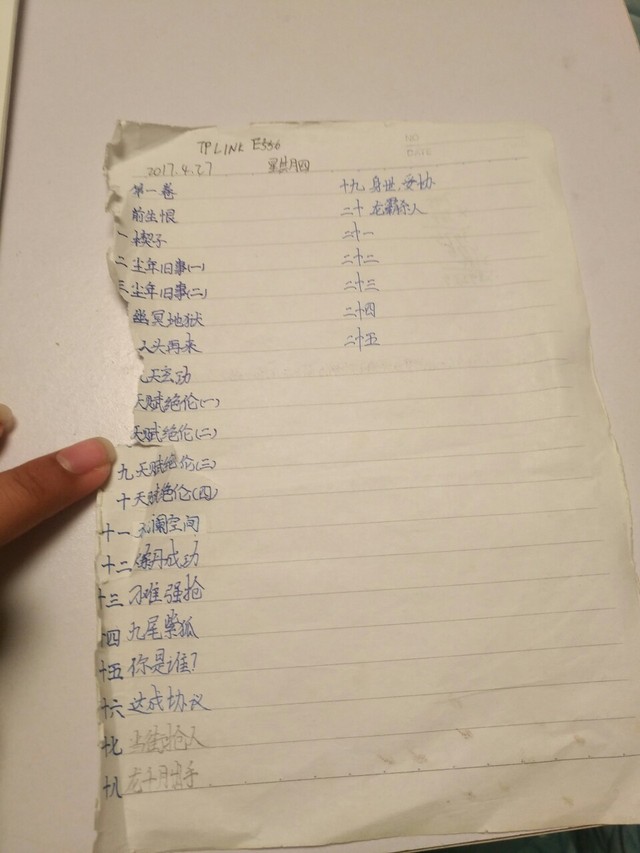 TPLINK E536
2017.4.27 星期四
第一卷
前生恨
一 楔子
二 尘年旧事(一)
三 尘年旧事(二)
幽冥地狱
从头再来
九天玄功
天赋绝伦(一)
天赋绝伦(二)
九 天赋绝伦(三)
十 天赋绝伦(四)
十一 空间
十二 丹成功
十三 刁难强抢
十四 九尾紫狐
十五 你是谁?
十六 达成协议
十七 当街抢人
十八 龙千月出手
十九 身世,妥协
二十 龙霸人
二十一
二十二
二十三
二十四
二十五
NO
DATE